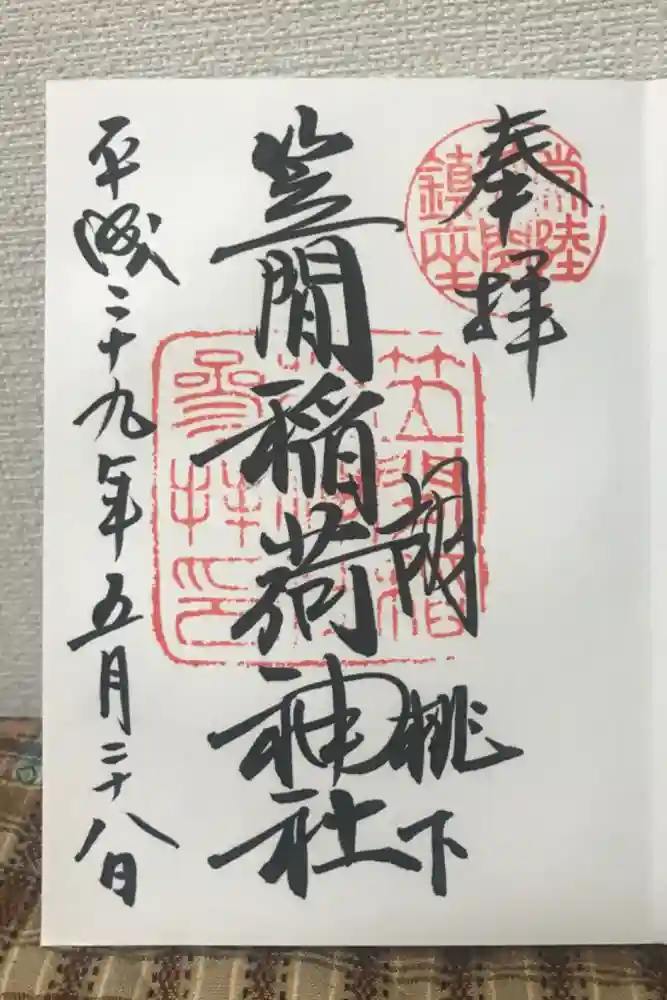 奉拝
常陸
笠間
鎮座
胡桃下
笠間稲荷神社
笠間稲
荷神社
参拝印
平成二十九年五月二十八日